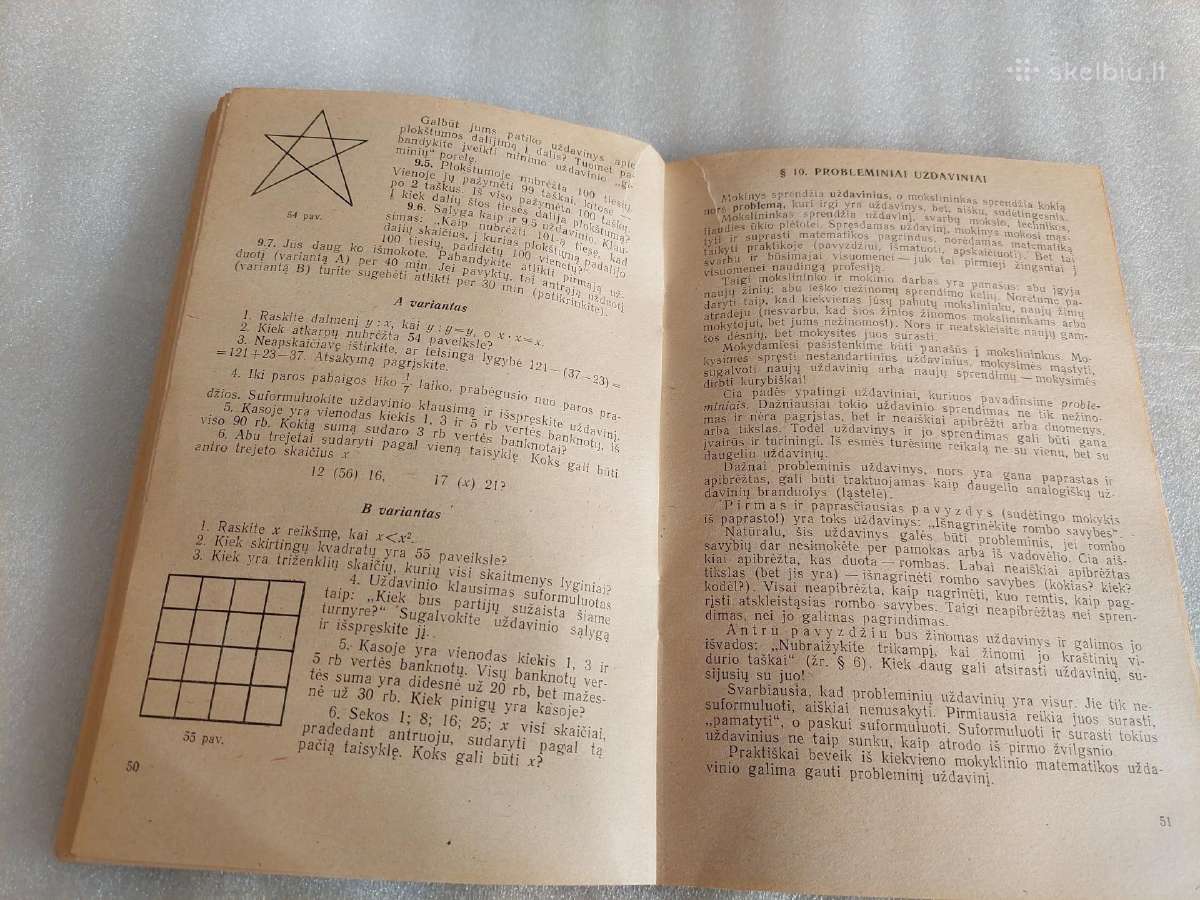 skelbiu.lt
Galbūt jums patiko uždavinys apie
plokštumos dalijimą į dalis? Tuomet pa-
bandykite įveikti minimo uždavinio „gi-
minių“ porelę.
9.5. Plokštumoje nubrėžta 100 tiesių.
Vienoje jų pažymėti 99 taškai, kitose —
po 2 taškus. Iš viso pažymėta 100 taškų.
Į kiek dalių šios tiesės dalija plokštumą?
9.6. Sąlyga kaip ir 9.5 uždavinio. Klau-
simas: „Kaip nubrėžti 101-ą tiesę, kad
dalių skaičius, į kurias plokštumą padalijo
100 tiesių, padidėtų 100 vienetų?“
54 pav.
9.7. Jūs daug ko išmokote. Pabandykite atlikti pirmąją už-
duotį (variantą A) per 40 min. Jei pavyktų, tai antrąją užduotį
(variantą B) turite sugebėti atlikti per 30 min (patikrinkite).
A variantas
1. Raskite dalmenį y : x, kai y : y=y, o x · x=x.
2. Kiek atkarpų nubrėžta 54 paveiksle?
3. Neapskaičiavę ištirkite, ar teisinga lygybė 121−(37−23)=
=121+23−37. Atsakymą pagrįskite.
4. Iki paros pabaigos liko 1/7 laiko, prabėgusio nuo paros pra-
džios. Suformuluokite uždavinio klausimą ir išspręskite uždavinį.
5. Kasoje yra vienodas kiekis 1, 3 ir 5 rb vertės banknotų, iš
viso 90 rb. Kokią sumą sudaro 3 rb vertės banknotai?
6. Abu trejetai sudaryti pagal vieną taisyklę. Koks gali būti
antro trejeto skaičius x
12 (56) 16, 17 (x) 21?
B variantas
1. Raskite x reikšmę, kai x<x².
2. Kiek skirtingų kvadratų yra 55 paveiksle?
3. Kiek yra triženklių skaičių, kurių visi skaitmenys lyginiai?
4. Uždavinio klausimas suformuluotas
taip: „Kiek bus partijų sužaista šiame
turnyre?“ Sugalvokite uždavinio sąlygą
ir išspręskite jį.
5. Kasoje yra vienodas kiekis 1, 3 ir
5 rb vertės banknotų. Visų banknotų ver-
tės suma yra didesnė už 20 rb, bet mažes-
nė už 30 rb. Kiek pinigų yra kasoje?
6. Sekos 1; 8; 16; 25; x visi skaičiai,
pradedant antruoju, sudaryti pagal tą
pačią taisyklę. Koks gali būti x?
55 pav.
50
§ 10. PROBLEMINIAI UŽDAVINIAI
Mokinys sprendžia uždavinius, o mokslininkas sprendžia kokią
nors problemą, kuri irgi yra uždavinys, bet, aišku, sudėtingesnis.
Mokslininkas sprendžia uždavinį, svarbų mokslo, technikos,
liaudies ūkio plėtotei. Spręsdamas uždavinį, mokinys mokosi mąs-
tyti ir suprasti matematikos pagrindus, norėdamas matematiką
taikyti praktikoje (pavyzdžiui, išmatuoti, apskaičiuoti). Bet tai
svarbu ir būsimajai visuomenei — juk tai pirmieji žingsniai į
visuomenei naudingą profesiją.
Taigi mokslininko ir mokinio darbas yra panašus: abu įgyja
naujų žinių; abu ieško nežinomų sprendimo kelių. Norėtume pa-
daryti taip, kad kiekvienas jūsų pabūtų mokslininku, naujų žinių
atradėju (nesvarbu, kad šios žinios žinomos mokslininkams arba
mokytojui, bet jums nežinomos!). Nors ir neatskleisite naujų gam-
tos dėsnių, bet mokysitės juos surasti.
Mokydamiesi pasistenkime būti panašūs į mokslininkus. Mo-
kysimės spręsti nestandartinius uždavinius, mokysimės mąstyti,
sugalvoti naujų uždavinių arba naujų sprendimų — mokysimės
dirbti kūrybiškai!
Čia padės ypatingi uždaviniai, kuriuos pavadinsime proble-
miniais. Dažniausiai tokio uždavinio sprendimas ne tik nežino-
mas ir nėra pagrįstas, bet ir neaiškiai apibrėžti arba duomenys,
arba tikslas. Todėl uždavinys ir jo sprendimas gali būti gana
įvairūs ir turiningi. Iš esmės turėsime reikalą ne su vienu, bet su
daugeliu uždavinių.
Dažnai probleminis uždavinys, nors yra gana paprastas ir
apibrėžtas, gali būti traktuojamas kaip daugelio analogiškų už-
davinių branduolys (ląstelė).
Pirmas ir paprasčiausias pavyzdys (sudėtingo mokykis
iš paprasto!) yra toks uždavinys: „Išnagrinėkite rombo savybes“.
Natūralu, šis uždavinys galės būti probleminis, jei rombo
savybių dar nesimokėte per pamokas arba iš vadovėlio. Čia aiš-
kiai apibrėžta, kas duota — rombas. Labai neaiškiai apibrėžtas
tikslas (bet jis yra) — išnagrinėti rombo savybes (kokias? kiek?
kodėl?). Visai neapibrėžta, kaip nagrinėti, kuo remtis, kaip pag-
rįsti atskleistąsias rombo savybes. Taigi neapibrėžtas nei spren-
dimas, nei jo galimas pagrindimas.
Antru pavyzdžiu bus žinomas uždavinys ir galimos jo
išvados: „Nubraižykite trikampį, kai žinomi jo kraštinių vi-
durio taškai“ (žr. § 6). Kiek daug gali atsirasti uždavinių, su-
sijusių su juo!
Svarbiausia, kad probleminių uždavinių yra visur. Jie tik ne-
suformuluoti, aiškiai nenusakyti. Pirmiausia reikia juos surasti,
„pamatyti“, o paskui suformuluoti. Suformuluoti ir surasti tokius
uždavinius ne taip sunku, kaip atrodo iš pirmo žvilgsnio.
Praktiškai beveik iš kiekvieno mokyklinio matematikos užda-
vinio galima gauti probleminį uždavinį.
51